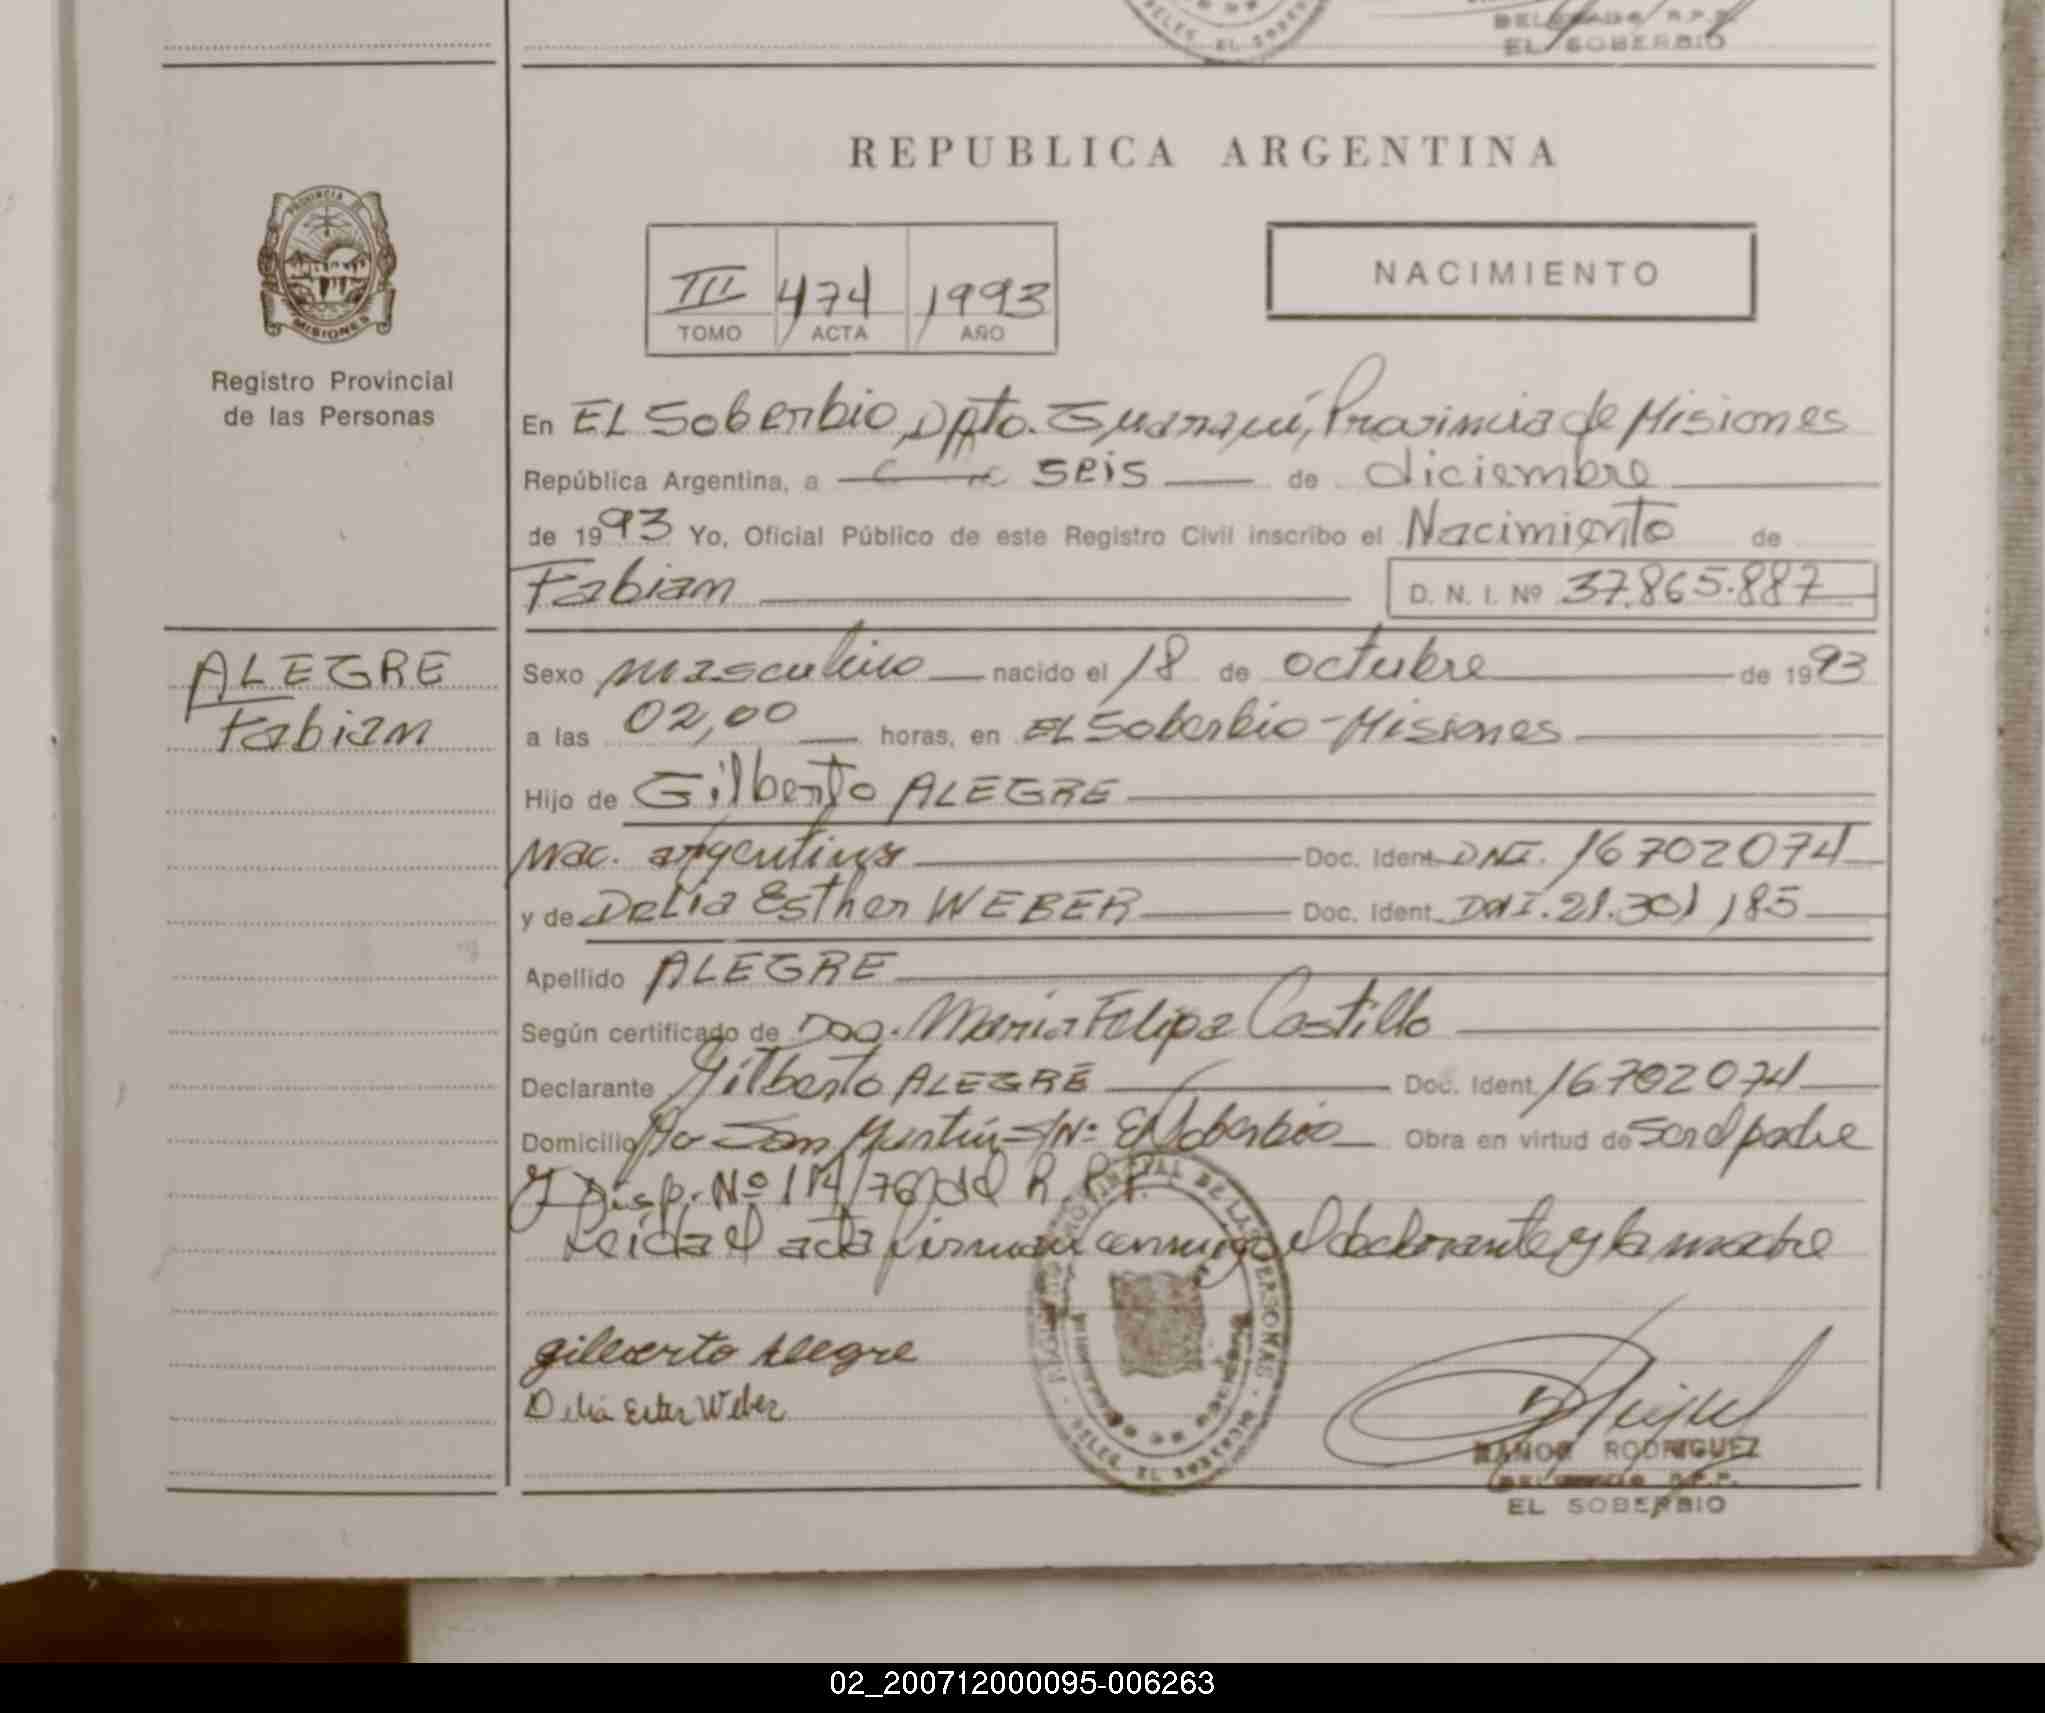 EL SOBERBIO
REPUBLICA ARGENTINA
PROVINCIA DE
MISIONES
Registro Provincial
de las Personas
III 474 1993
TOMO ACTA AÑO
NACIMIENTO
En EL Soberbio, Dpto. Guaraní, Provincia de Misiones
República Argentina, a seis de diciembre
de 1993 Yo, Oficial Público de este Registro Civil inscribo el Nacimiento de
Fabian D. N. I. Nº 37.865.887
ALEGRE
Fabian
Sexo masculino nacido el 18 de octubre de 1993
a las 02,00 horas, en EL Soberbio - Misiones
Hijo de Gilberto ALEGRE
Nac. argentina Doc. Ident. DNI. 16702074
y de Delia Esther WEBER Doc. Ident. DNI. 21.301,185
Apellido ALEGRE
Según certificado de Doo. Maria Felipa Castillo
Declarante Gilberto ALEGRE Doc. Ident. 16702074
Domicilio San Martín S/Nº El Soberbio Obra en virtud de ser el padre
y Disp. Nº 114/76 del R. P. P.
Leida el acta firman conmigo el declarante y la madre
gilberto Alegre
Delia Ester Weber
DELEG. EL SOBERBIO
RAMON RODRIGUEZ
DELEGADO R.P.P.
EL SOBERBIO
02_200712000095-006263